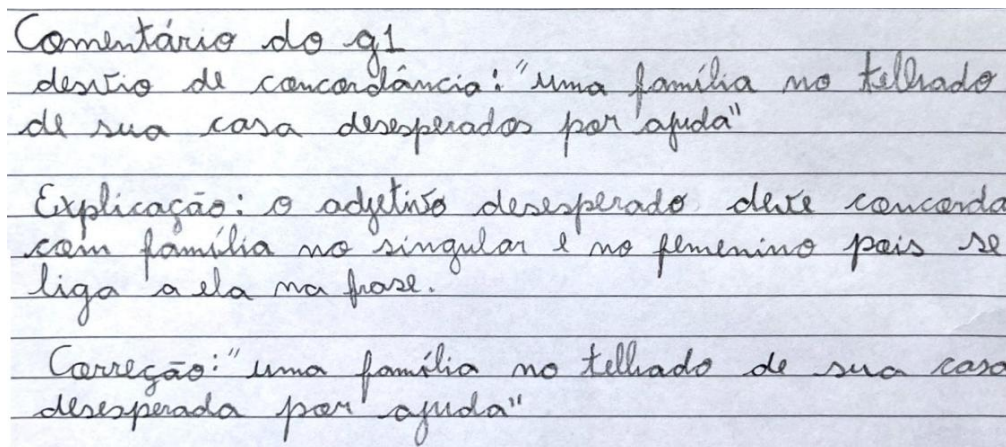 Comentário do g1
desvio de concordância: "uma família no telhado
de sua casa desesperados por ajuda"
Explicação: o adjetivo desesperado deve concorda
com família no singular e no femenino pois se
liga a ela na frase.
Correção: "uma família no telhado de sua casa
desesperada por ajuda"